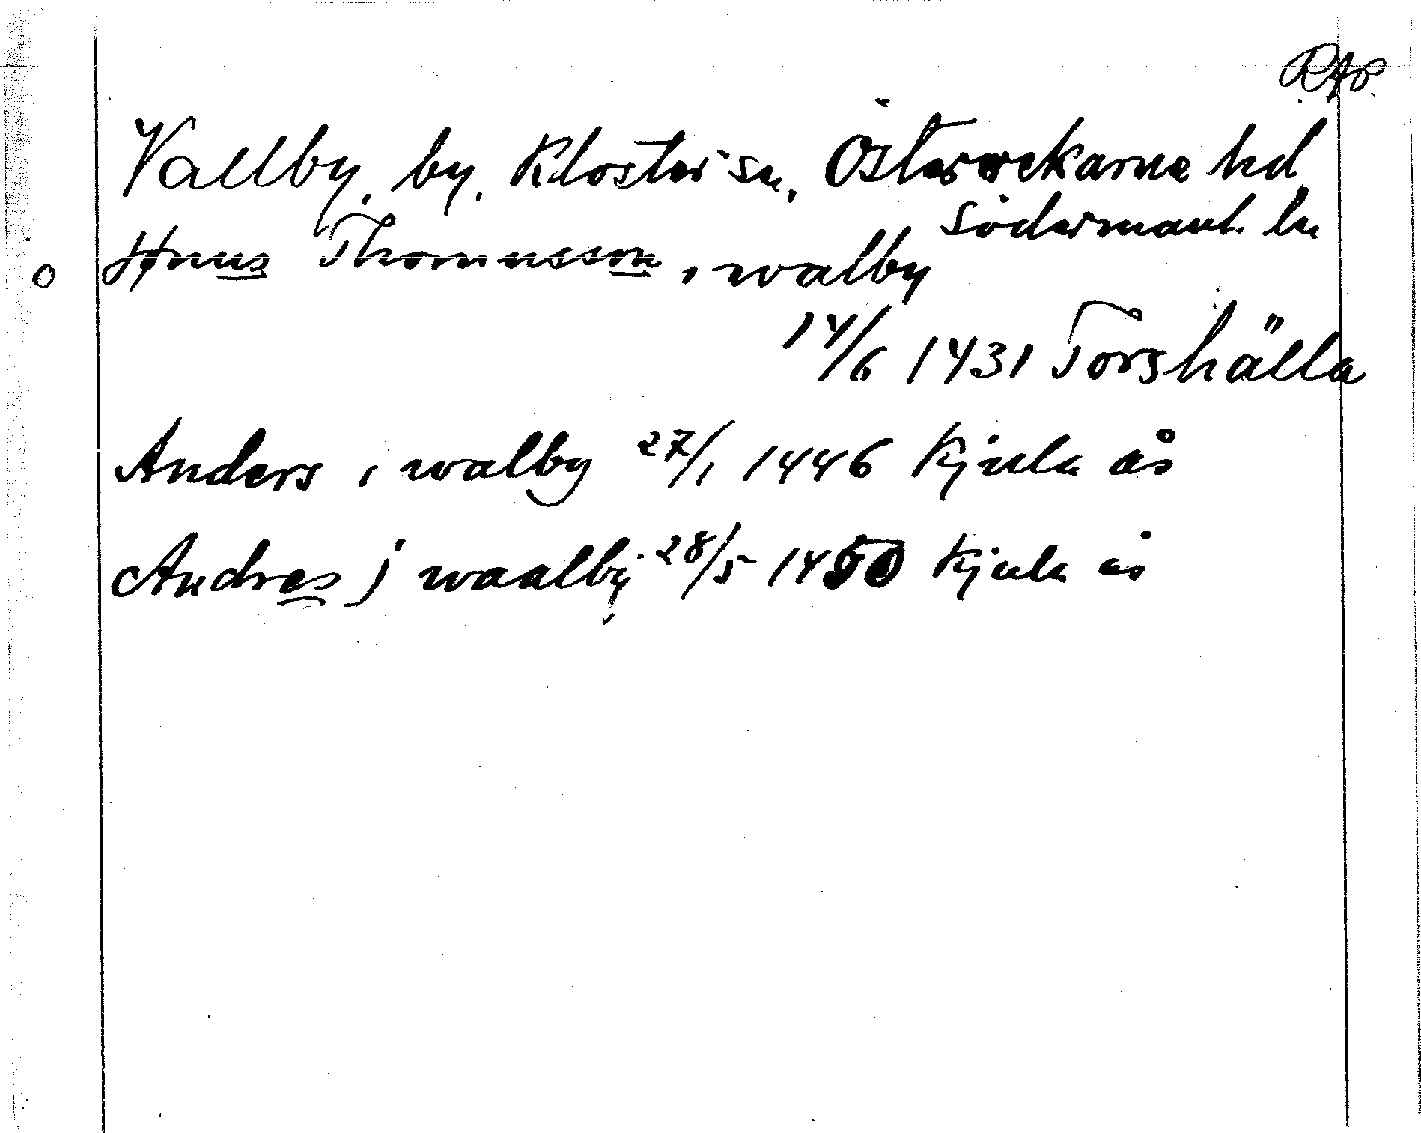 RAp.
Vallby, by, Kloster sn, Österrekarne hd
Södermanl. ln
o Jonus Thomusson, i walby
14/6 1431 Torshälla
Anders i walby 27/1 1446 Kjula ås
Andres j waalby 28/5 1450 Kjula ås